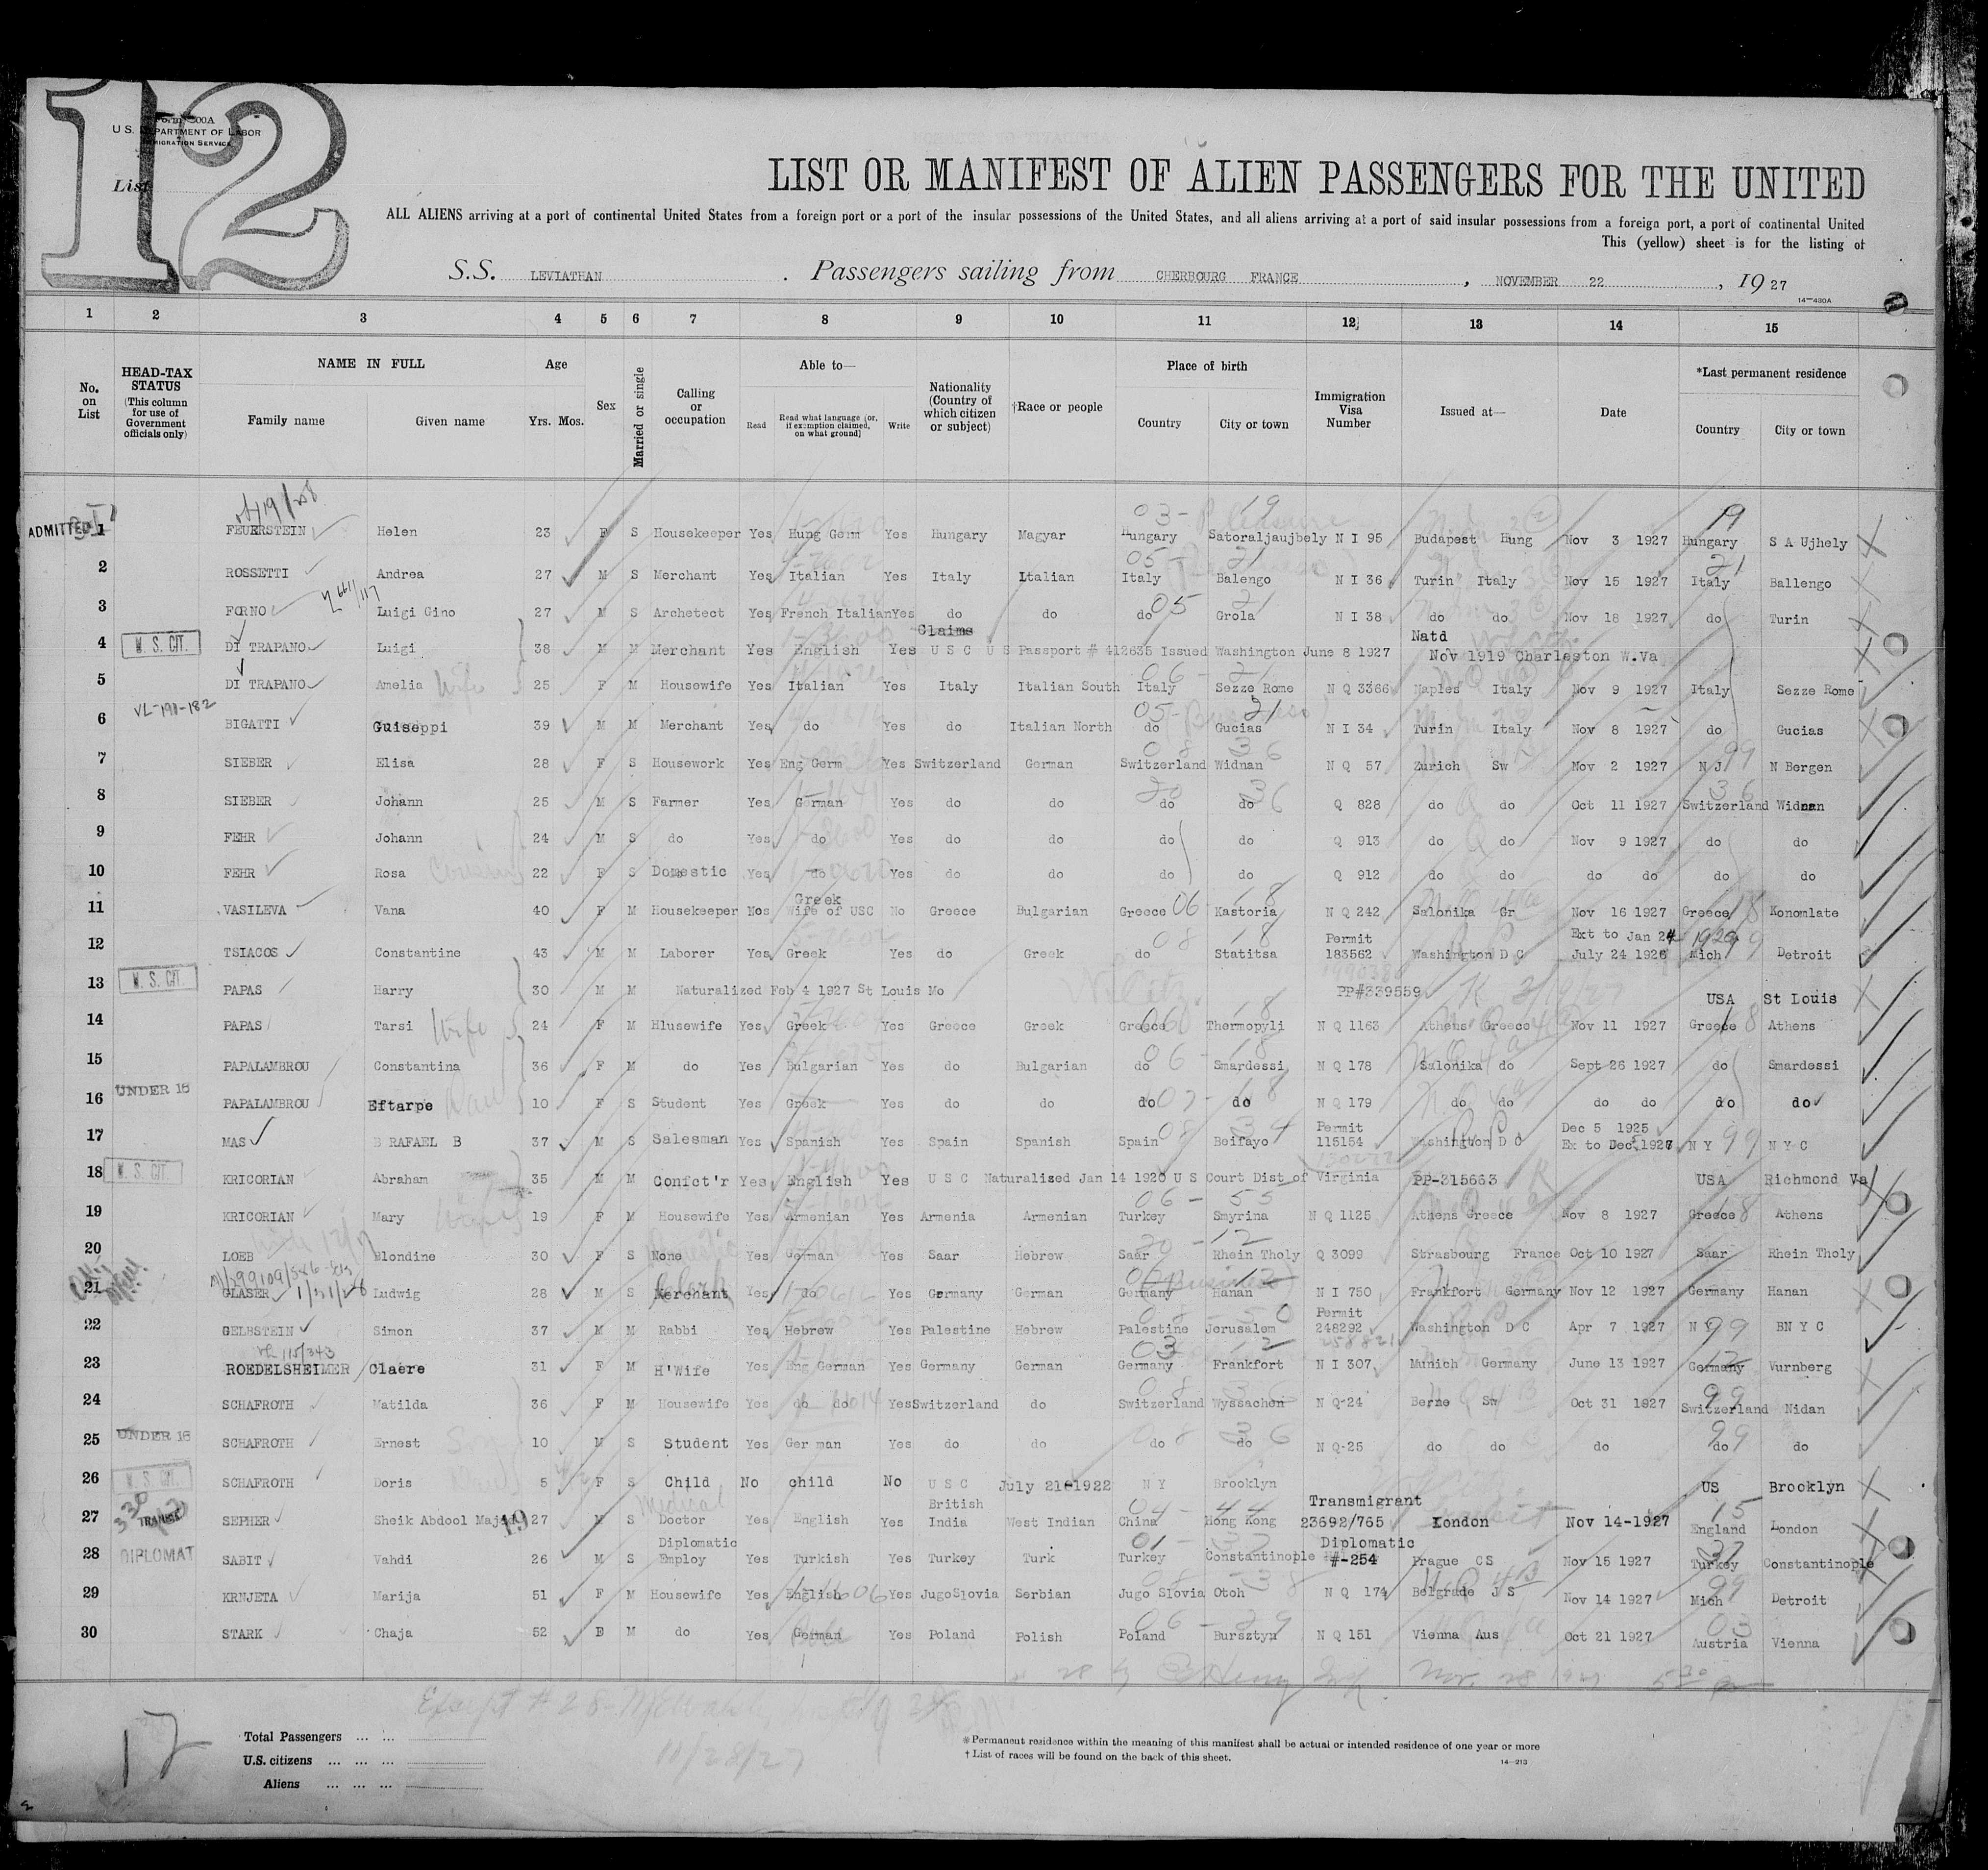 12
Form 500A
U. S. DEPARTMENT OF LABOR
IMMIGRATION SERVICE
List
LIST OR MANIFEST OF ALIEN PASSENGERS FOR THE UNITED
ALL ALIENS arriving at a port of continental United States from a foreign port or a port of the insular possessions of the United States, and all aliens arriving at a port of said insular possessions from a foreign port, a port of continental United
This (yellow) sheet is for the listing of
S.S. LEVIATHAN . Passengers sailing from CHERBOURG FRANCE , NOVEMBER 22 , 19 27
14—430A
1 2 3 4 5 6 7 8 9 10 11 12 13 14 15
No. on List
HEAD-TAX STATUS (This column for use of Government officials only)
NAME IN FULL Family name Given name
Age Yrs. Mos.
Sex
Married or single
Calling or occupation
Able to— Read Read what language (or, if exemption claimed, on what ground) Write
Nationality (Country of which citizen or subject)
†Race or people
Place of birth Country City or town
Immigration Visa Number
Issued at—
Date
*Last permanent residence Country City or town
ADMITTED 1 FEUERSTEIN Helen 23 F S Housekeeper Yes Hung Germ Yes Hungary Magyar Hungary Satoraljaujbely N I 95 Budapest Hung Nov 3 1927 Hungary S A Ujhely
2 ROSSETTI Andrea 27 M S Merchant Yes Italian Yes Italy Italian Italy Balengo N I 36 Turin Italy Nov 15 1927 Italy Ballengo
3 FORNO Luigi Gino 27 M S Archetect Yes French Italian Yes do do do Grola N I 38 do do Nov 18 1927 do Turin
Claims Natd
4 U. S. CIT. DI TRAPANO Luigi 38 M M Merchant Yes English Yes U S C U S Passport # 412635 Issued Washington June 8 1927 Nov 1919 Charleston W.Va
5 DI TRAPANO Amelia Wife 25 F M Housewife Yes Italian Yes Italy Italian South Italy Sezze Rome N Q 3366 Naples Italy Nov 9 1927 Italy Sezze Rome
VL-191-182
6 BIGATTI Guiseppi 39 M M Merchant Yes do Yes do Italian North do Gucias N I 34 Turin Italy Nov 8 1927 do Gucias
7 SIEBER Elisa 28 F S Housework Yes Eng Germ Yes Switzerland German Switzerland Widnan N Q 57 Zurich Sw Nov 2 1927 N J N Bergen
8 SIEBER Johann 25 M S Farmer Yes German Yes do do do do Q 828 do do Oct 11 1927 Switzerland Widnan
9 FEHR Johann 24 M S do Yes do Yes do do do do Q 913 do do Nov 9 1927 do do
10 FEHR Rosa 22 F S Domestic Yes do Yes do do do do Q 912 do do do do do do
Greek
11 VASILEVA Vana 40 F M Housekeeper No Wife of USC No Greece Bulgarian Greece Kastoria N Q 242 Salonika Gr Nov 16 1927 Greece Konomlate
Permit Ext to Jan 24 1929
12 TSIACOS Constantine 43 M M Laborer Yes Greek Yes do Greek do Statitsa 183562 Washington D C July 24 1926 Mich Detroit
13 U. S. CIT. PAPAS Harry 30 M M Naturalized Feb 4 1927 St Louis Mo PP#339559 USA St Louis
14 PAPAS Tarsi Wife 24 F M Hlusewife Yes Greek Yes Greece Greek Greece Thermopyli N Q 1163 Athens Greece Nov 11 1927 Greece Athens
15 PAPALAMBROU Constantina 36 F M do Yes Bulgarian Yes do Bulgarian do Smardessi N Q 178 Salonika do Sept 26 1927 do Smardessi
16 UNDER 15 PAPALAMBROU Eftarpe 10 F S Student Yes Greek Yes do do do do N Q 179 do do do do do do
Permit Dec 5 1925
17 MAS B RAFAEL B 37 M S Salesman Yes Spanish Yes Spain Spanish Spain Beifayo 115154 Washington D C Ex to Dec 1927 N Y N Y C
18 U. S. CIT. KRICORIAN Abraham 35 M M Confct'r Yes English Yes U S C Naturalized Jan 14 1920 U S Court Dist of Virginia PP-315663 USA Richmond Va
19 KRICORIAN Mary 19 F M Housewife Yes Armenian Yes Armenia Armenian Turkey Smyrina N Q 1125 Athens Greece Nov 8 1927 Greece Athens
20 LOEB Blondine 30 F S None Yes German Yes Saar Hebrew Saar Rhein Tholy Q 3099 Strasbourg France Oct 10 1927 Saar Rhein Tholy
21 GLASER Ludwig 28 M S Merchant Clerk Yes do Yes Germany German Germany Hanan N I 750 Frankfort Germany Nov 12 1927 Germany Hanan
Permit
22 GELBSTEIN Simon 37 M M Rabbi Yes Hebrew Yes Palestine Hebrew Palestine Jerusalem 248292 Washington D C Apr 7 1927 N Y BN Y C
23 ROEDELSHEIMER Claere 31 F M H'Wife Yes Eng German Yes Germany German Germany Frankfort N I 307 Munich Germany June 13 1927 Germany Vurnberg
24 SCHAFROTH Matilda 36 F M Housewife Yes do do Yes Switzerland do Switzerland Wyssachen N Q-24 Berne Sw Oct 31 1927 Switzerland Nidan
25 UNDER 16 SCHAFROTH Ernest Son 10 M S Student Yes German Yes do do do do N Q-25 do do do do do
26 U. S. CIT. SCHAFROTH Doris 5 F S Child No child No U S C July 21-1922 N Y Brooklyn US Brooklyn
Medical British Transmigrant
27 TRANSIT SEPHER Sheik Abdool Majid 27 M S Doctor Yes English Yes India West Indian China Hong Kong 23692/765 London Nov 14-1927 England London
Diplomatic Diplomatic
28 DIPLOMAT SABIT Vahdi 26 M S Employ Yes Turkish Yes Turkey Turk Turkey Constantinople #-254 Prague CS Nov 15 1927 Turkey Constantinople
29 KRNJETA Marija 51 F M Housewife Yes English Yes JugoSlovia Serbian Jugo Slovia Otoh N Q 174 Belgrade J S Nov 14 1927 Mich Detroit
30 STARK Chaja 52 F M do Yes German Yes Poland Polish Poland Bursztyn N Q 151 Vienna Aus Oct 21 1927 Austria Vienna
Except # 28
11/28/27
12
Total Passengers
U.S. citizens
Aliens
* Permanent residence within the meaning of this manifest shall be actual or intended residence of one year or more
† List of races will be found on the back of this sheet.
14—213